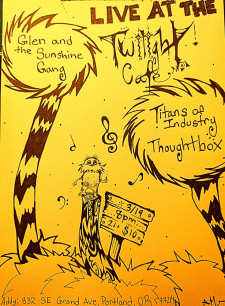 LIVE AT THE
Twilight
Cafe
Glen and
the Sunshine
Gang
Titans of
Industry
Thoughtbox
3/19
8pm
21+
$10
Addy: 832 SE Grand Ave, Portland, OR